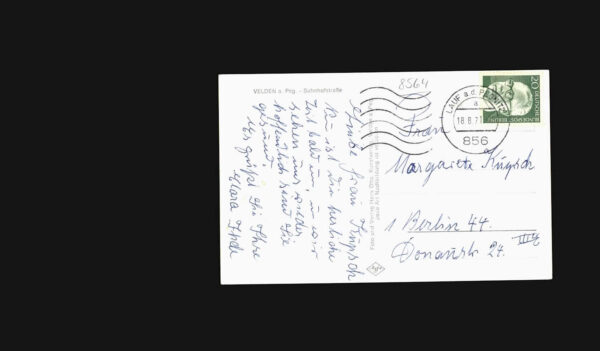 VELDEN a. Peg. - Bahnhofstraße
8564
LAUF a. d. PEGNITZ
a
18.8.71
856
20
DEUTSCHE BUNDESPOST BERLIN
Liebe Frau Kupsch
Nu ist die herrliche
Zeit bald um, u wir
sehen uns wieder
hoffentlich sind Sie
gesund,
es grüßt Sie Ihre
Klara
Frau
Margarete Kupsch
1 Berlin 44.
Donaustr 24.
Agfa